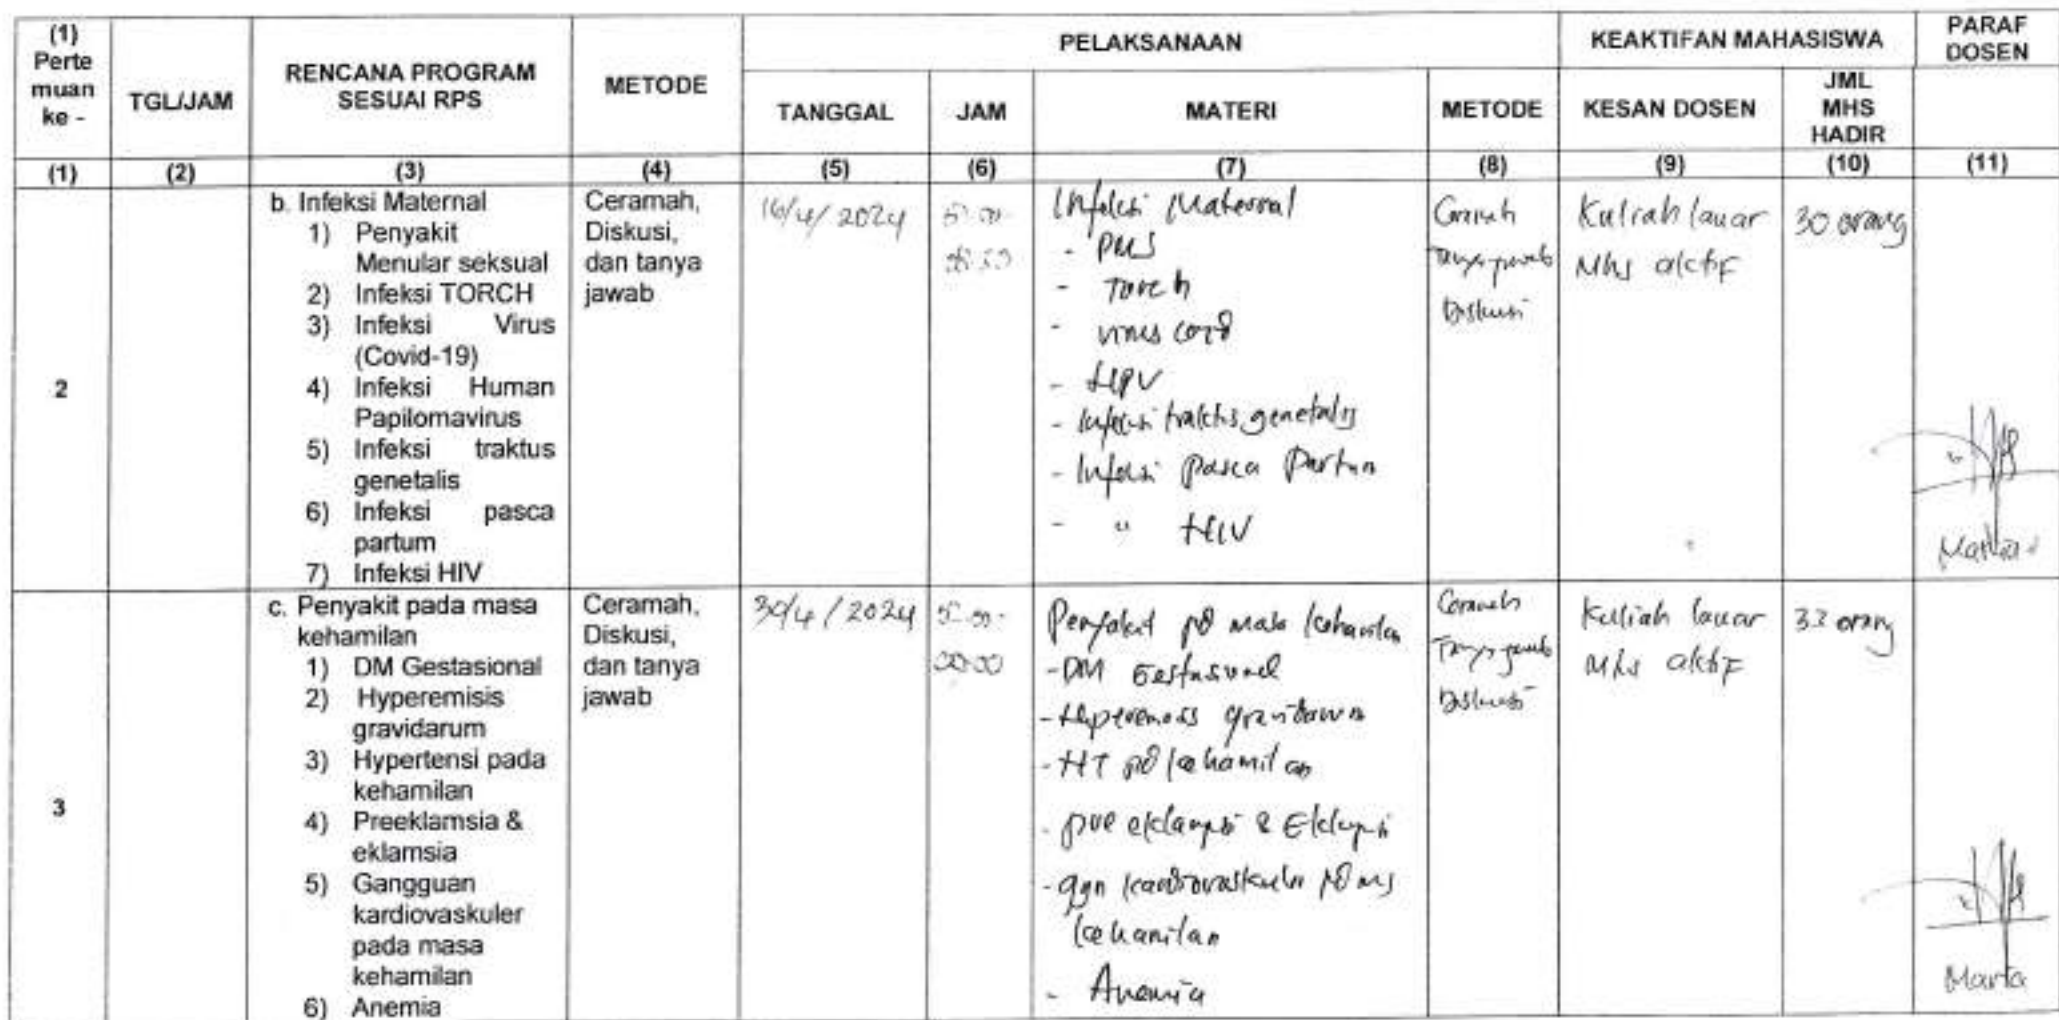 (1)
Perte
muan
ke -
TGL/JAM
RENCANA PROGRAM
SESUAI RPS
METODE
PELAKSANAAN
TANGGAL
JAM
MATERI
METODE
KEAKTIFAN MAHASISWA
KESAN DOSEN
JML
MHS
HADIR
PARAF
DOSEN
(1) (2) (3) (4) (5) (6) (7) (8) (9) (10) (11)
2
b. Infeksi Maternal
1) Penyakit
Menular seksual
2) Infeksi TORCH
3) Infeksi Virus
(Covid-19)
4) Infeksi Human
Papilomavirus
5) Infeksi traktus
genetalis
6) Infeksi pasca
partum
7) Infeksi HIV
Ceramah,
Diskusi,
dan tanya
jawab
16/4/2024
Infeksi Maternal
- PMS
- Torch
- virus
- HPV
- Infeksi traktus genetalis
- Infeksi pasca Partum
- " HIV
Diskusi
Kuliah lancar
Mhs aktif
30 orang
3
c. Penyakit pada masa
kehamilan
1) DM Gestasional
2) Hyperemisis
gravidarum
3) Hypertensi pada
kehamilan
4) Preeklamsia &
eklamsia
5) Gangguan
kardiovaskuler
pada masa
kehamilan
6) Anemia
Ceramah,
Diskusi,
dan tanya
jawab
30/4/2024
Penyakit pd masa kehamilan
- DM Gestasional
- Hiperemesis gravidarum
- HT pd kehamilan
- pre eklampsi & Eklampsi
- ggn kardiovaskuler pd ms
kehamilan
- Anemia
Diskusi
Kuliah lancar
Mhs aktif
33 orang
Marta